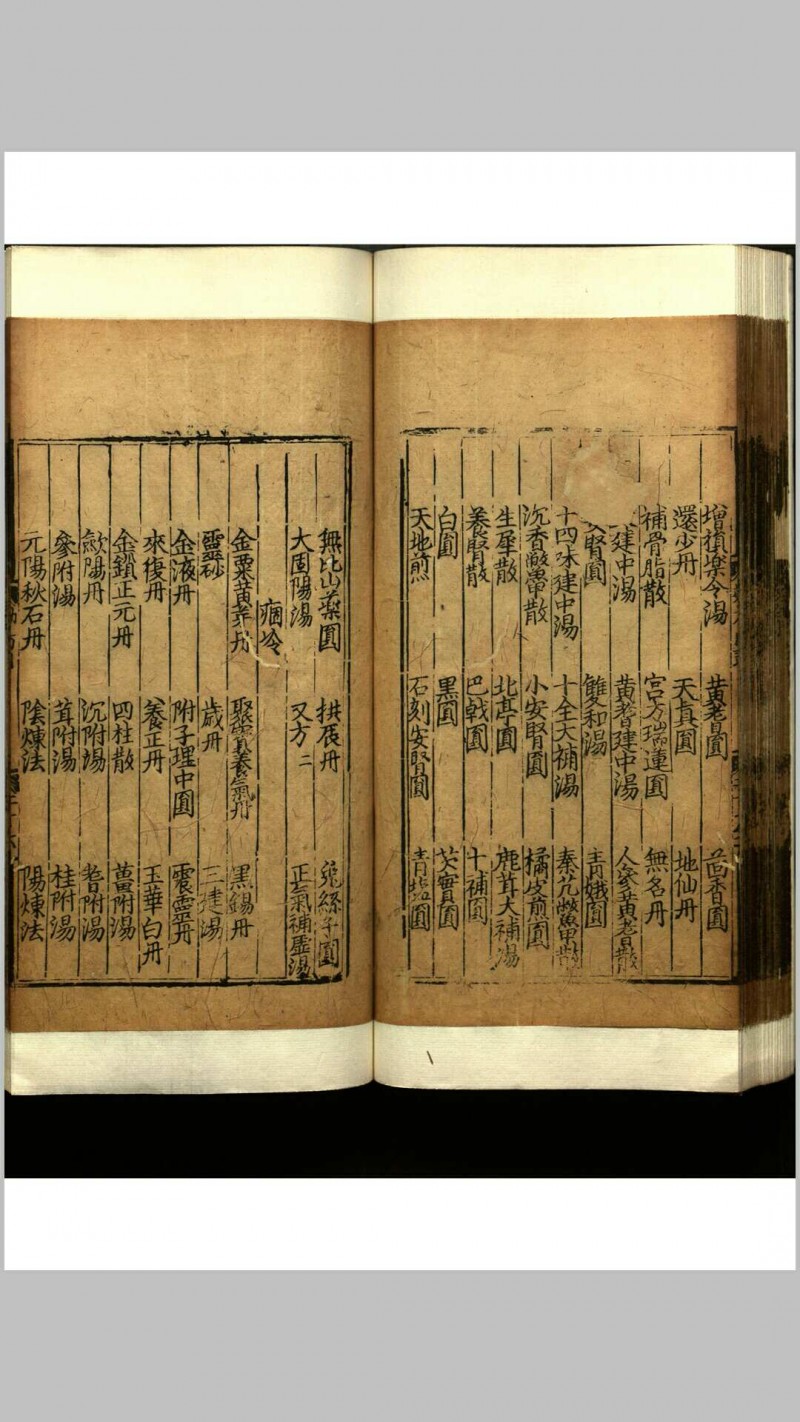 增損樂令湯 黄耆圓 茴香圓
還少丹 天真圓 地仙丹
補骨脂散 宫方瑞蓮圓 無名丹
建中湯 黄耆建中湯 人參黄耆散
腎圓 雙和湯 青娥圓
十四味建中湯 十全大補湯 秦艽鱉甲散
沉香鱉甲散 小安腎圓 橘皮煎圓
生犀散 北亭圓 鹿茸大補湯
養腎散 巴戟圓 十補圓
白圓 黑圓 芡實圓
天地煎 石刻安腎圓 青鹽圓
無比山藥圓 拱辰丹 兔絲子圓
大固陽湯 又方二 正氣補虚湯
痼冷
金粟黄芽丹 聚寳養氣丹 黑錫丹
靈砂 歲丹 三建湯
金液丹 附子理中圓 震靈丹
來復丹 養正丹 玉華白丹
金鎖正元丹 四柱散 薑附湯
歛陽丹 沉附湯 耆附湯
參附湯 茸附湯 桂附湯
元陽秋石丹 陰煉法 陽煉法